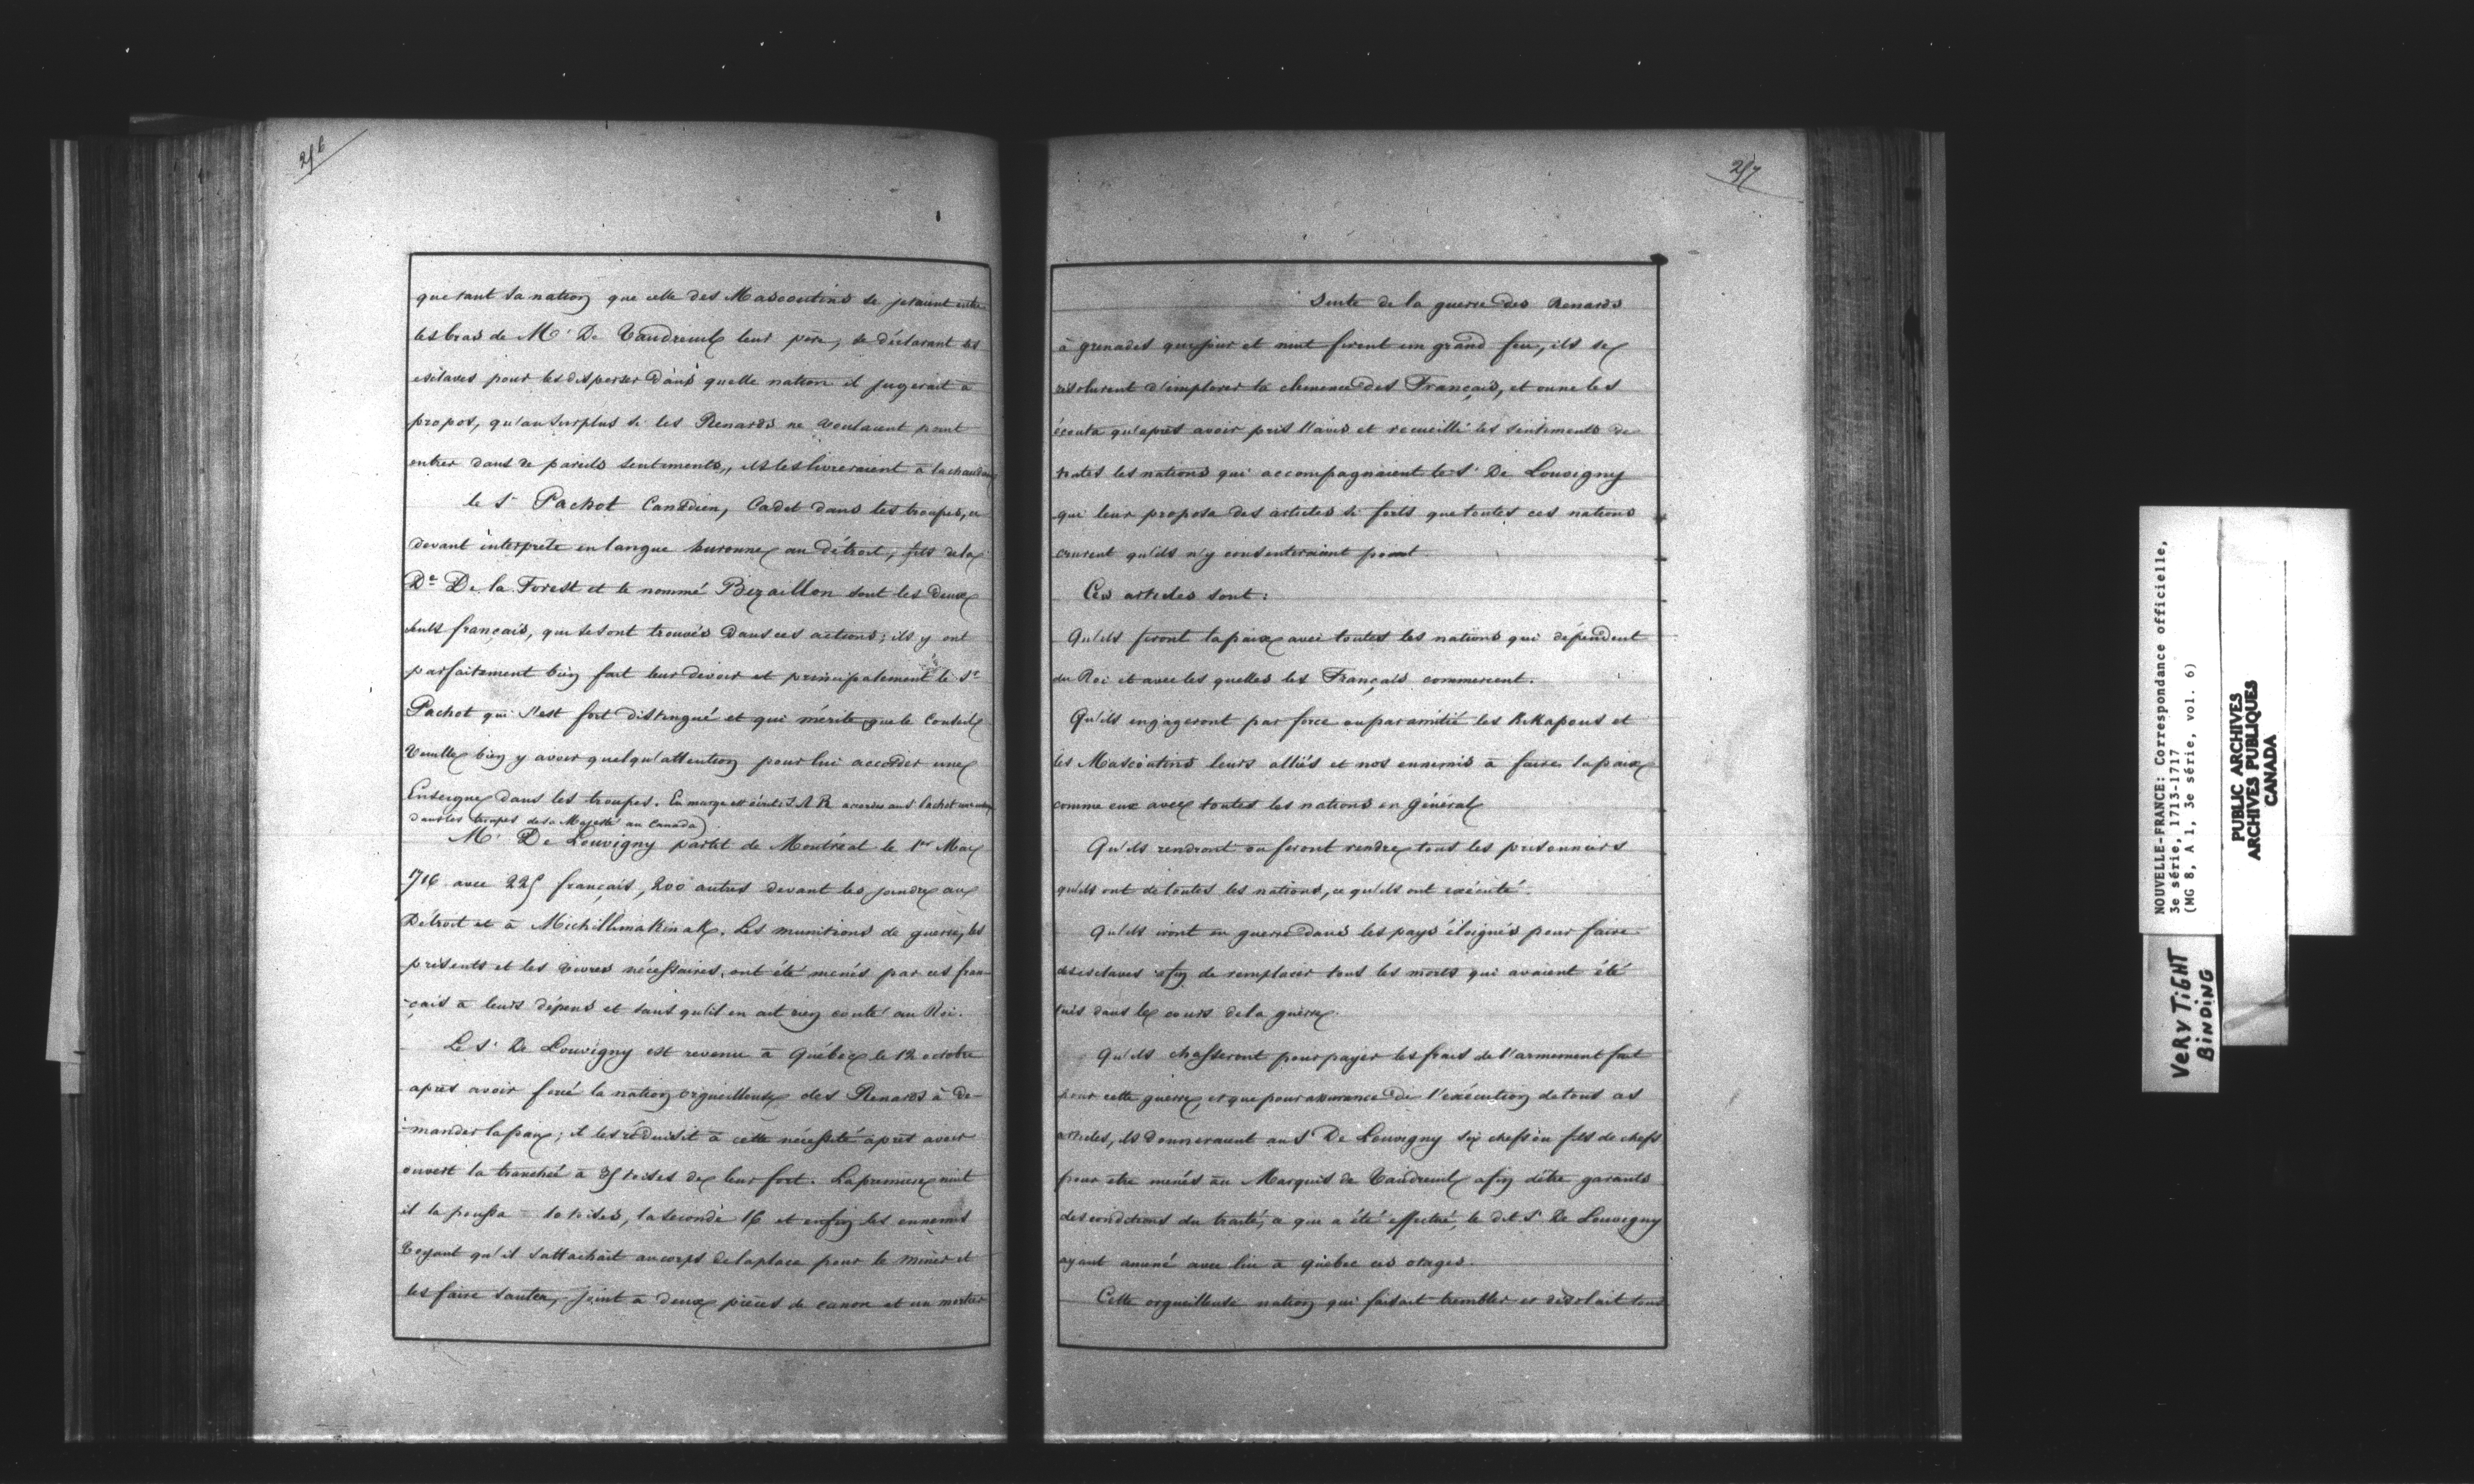 256
que tant sa nation que celle des Mascoutins se jetaient entre
les bras de Mr De Vaudreuil leur père, se déclarant ses
esclaves pour les disperser dans quelle nation il jugerait à
propos, qu'au surplus si les Renards ne voulaient point
entrer dans de pareils sentiments, ils les livreraient à la chaudière
le Sr Pachot Canadien, Cadet dans les troupes, ci
devant interprète en langue huronne au détroit, fils de la
De De la Forest et le nommé Bizaillon sont les deux
seuls français, qui se sont trouvés dans ces actions; ils y ont
parfaitement bien fait leur devoir et principalement le Sr
Pachot qui s'est fort distingué et qui mérite que le Conseil
Veuille bien y avoir quelqu'attention pour lui accorder une
Enseigne dans les troupes. En marge est écrit: S A R accordé au S. Pachot
dans les troupes de sa Majesté au Canada)
Mr De Louvigny partit de Montréal le 1er Mai
1716 avec 225 français, 200 autres devant les joindre au
Détroit et à Michillimakinak. Les munitions de guerre, les
présents et les vivres nécessaires, ont été menés par ces fran-
-çais à leurs dépens et sans qu'il en ait rien couté au Roi.
Le Sr De Louvigny est revenu à Québec le 12 octobre
après avoir forcé la nation orgueilleuse des Renards à de-
-mander la paix; il les réduisit à cette nécessité après avoir
ouvert la tranchée à 35 toises de leur fort. La première nuit
il la poussa 10 toises, la seconde 16 et enfin les ennemis
Voyant qu'il s'attachait au corps de la place pour le miner et
les faire sauter, joint à deux pièces de canon et un mortier
257
Suite de la guerre des Renards
à grenades qui jour et nuit firent un grand feu, ils se
résolurent d'implorer la clemence des Français, et on ne les
écouta qu'après avoir pris l'avis et recueilli les sentiments de
toutes les nations qui accompagnaient le Sr De Louvigny
qui leur proposa des articles si forts que toutes ces nations
crurent qu'ils n'y consentiraient point.
Ces articles sont:
Qu'ils feront la paix avec toutes les nations qui dépendent
du Roi et avec les quelles les Français commercent.
Qu'ils engageront par force ou par amitié les Kikapous et
les Mascoutins leurs alliés et nos ennemis à faire la paix
comme eux avec toutes les nations en général
Qu'ils rendront ou feront rendre tous les prisonniers
qu'ils ont de toutes les nations, ce qu'ils ont exécuté.
Qu'ils iront en guerre dans les pays éloignés pour faire
des esclaves afin de remplacer tous les morts qui avaient été
tués dans le cours de la guerre.
Qu'ils chasseront pour payer les frais de l'armement fait
pour cette guerre, et que pour assurance de l'exécution de tous ces
articles, ils donneraient au S De Louvigny six chefs ou fils de chefs
pour etre menés au Marquis de Vaudreuil afin d'être garants
des conditions du traité, ce qui a été effectué, le dit Sr De Louvigny
ayant amené avec lui à Québec ces otages.
Cette orgueilleuse nation qui faisait trembler et désolait tous
NOUVELLE-FRANCE: Correspondance officielle,
3e série, 1713-1717
(MG 8, A 1, 3e série, vol. 6)
PUBLIC ARCHIVES
ARCHIVES PUBLIQUES
CANADA
VERY TIGHT
BINDING